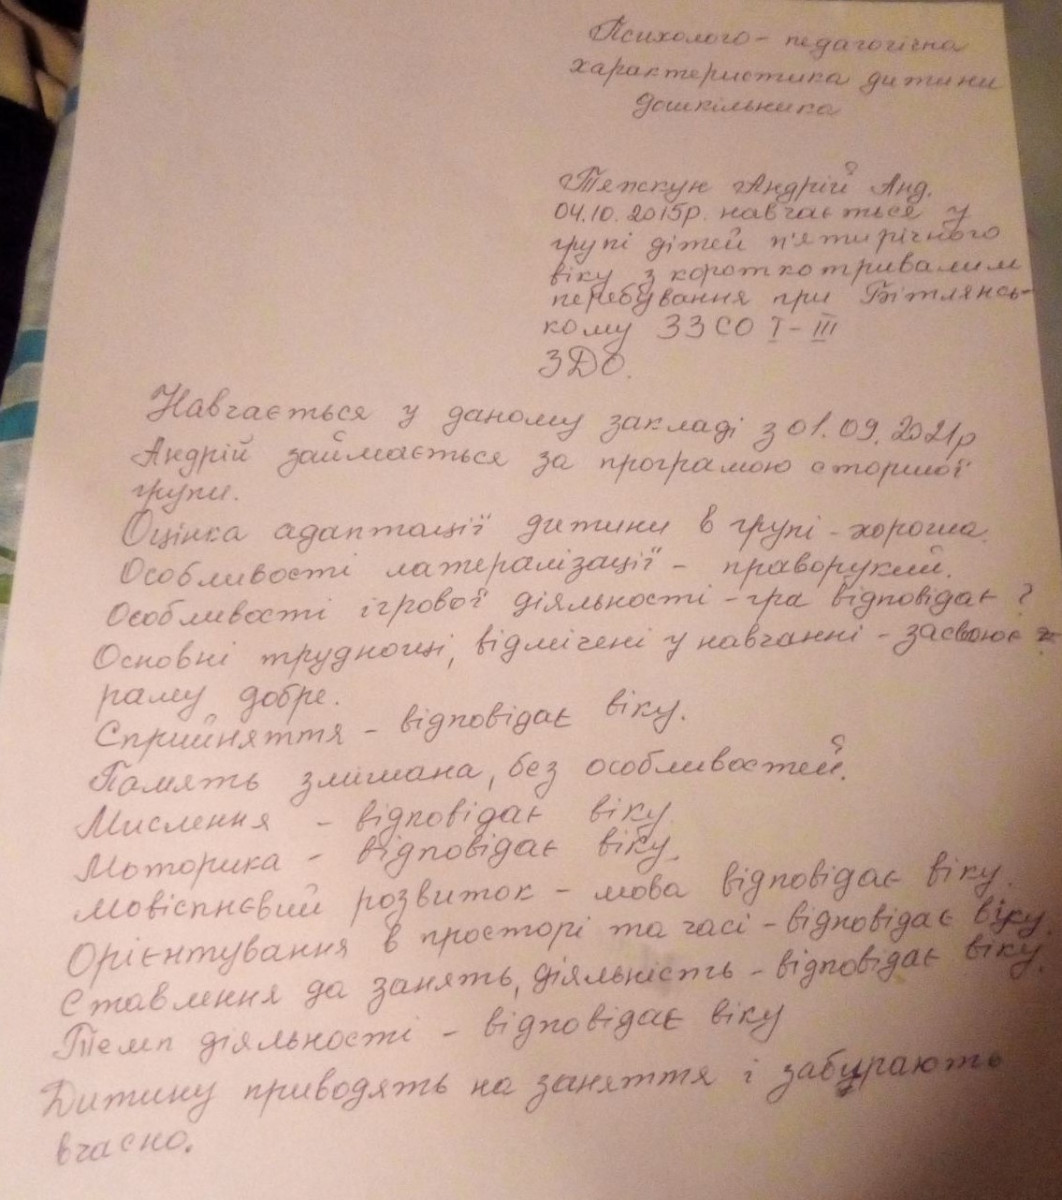 Психолого - педагогічна
характеристика дитини
дошкільника
Тяжкун Андрій Анд.
04.10.2015р. навчається у
групі дітей п'ятирічного
віку з короткотривалим
перебування при Вітлянсь-
кому ЗЗСО І-ІІІ
ЗДО.
Навчається у даному закладі з 01.09.2021р
Андрій займається за програмою старшої
групи.
Оцінка адаптації дитини в групі - хороша.
Особливості латералізації - праворукий.
Особливості ігрової діяльності - гра відповідає
Основні труднощі, відмічені у навчанні - засвоює
раму добре.
Сприйняття - відповідає віку.
Память змішана, без особливостей.
Мислення - відповідає віку
Моторика - відповідає віку.
розвиток - мова відповідає віку.
Орієнтування в просторі та часі - відповідає віку.
Ставлення да занять, діяльність - відповідає віку.
Темп діяльності - відповідає віку
Дитину приводять на заняття і забирають
вчасно.